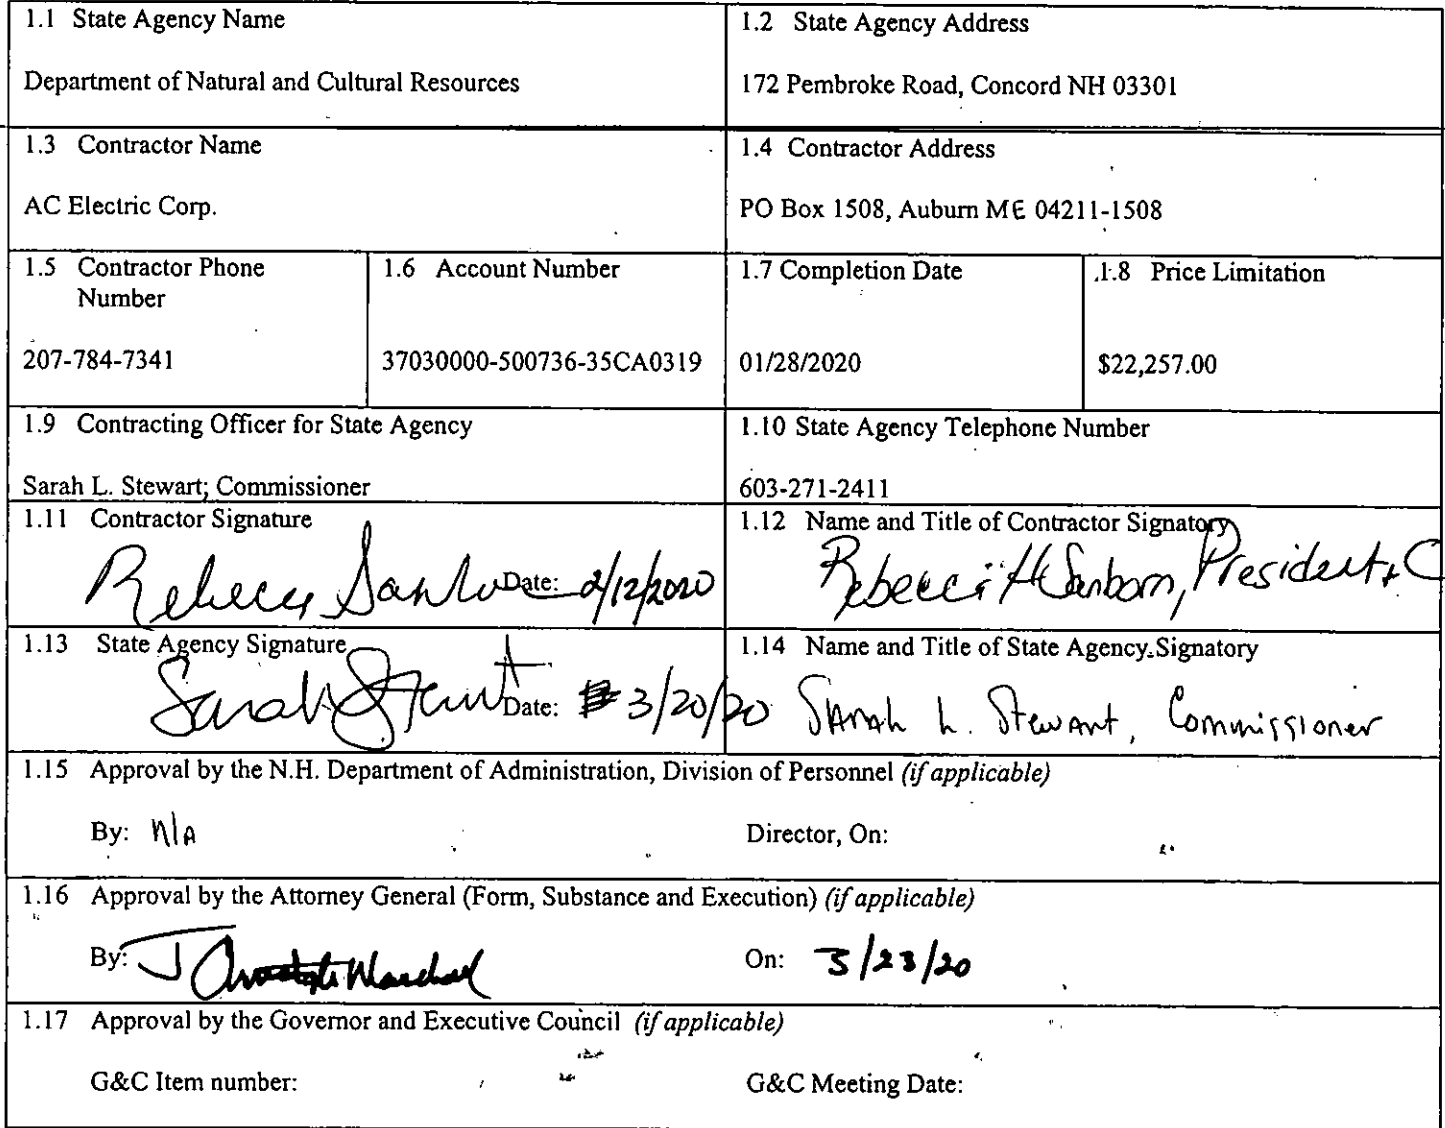 1.1 State Agency Name
Department of Natural and Cultural Resources
1.2 State Agency Address
172 Pembroke Road, Concord NH 03301
1.3 Contractor Name
AC Electric Corp.
1.4 Contractor Address
PO Box 1508, Auburn ME 04211-1508
1.5 Contractor Phone
Number
207-784-7341
1.6 Account Number
37030000-500736-35CA0319
1.7 Completion Date
01/28/2020
1.8 Price Limitation
$22,257.00
1.9 Contracting Officer for State Agency
Sarah L. Stewart; Commissioner
1.10 State Agency Telephone Number
603-271-2411
1.11 Contractor Signature
Rebecca Sanborn Date: 2/12/2020
1.12 Name and Title of Contractor Signatory
Rebecca H Sanborn, President + C
1.13 State Agency Signature
Sarah Stewart Date: 3/20/20
1.14 Name and Title of State Agency Signatory
Sarah L. Stewart, Commissioner
1.15 Approval by the N.H. Department of Administration, Division of Personnel (if applicable)
By: N/A
Director, On:
1.16 Approval by the Attorney General (Form, Substance and Execution) (if applicable)
By:
On: 3/23/20
1.17 Approval by the Governor and Executive Council (if applicable)
G&C Item number:
G&C Meeting Date: